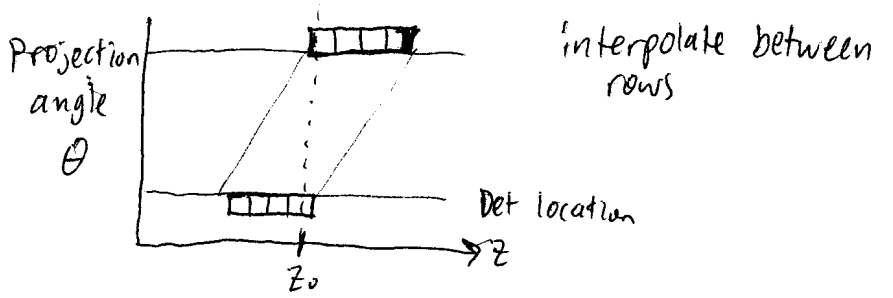 Projection
angle
θ
interpolate between
rows
Det location
Z
Z₀